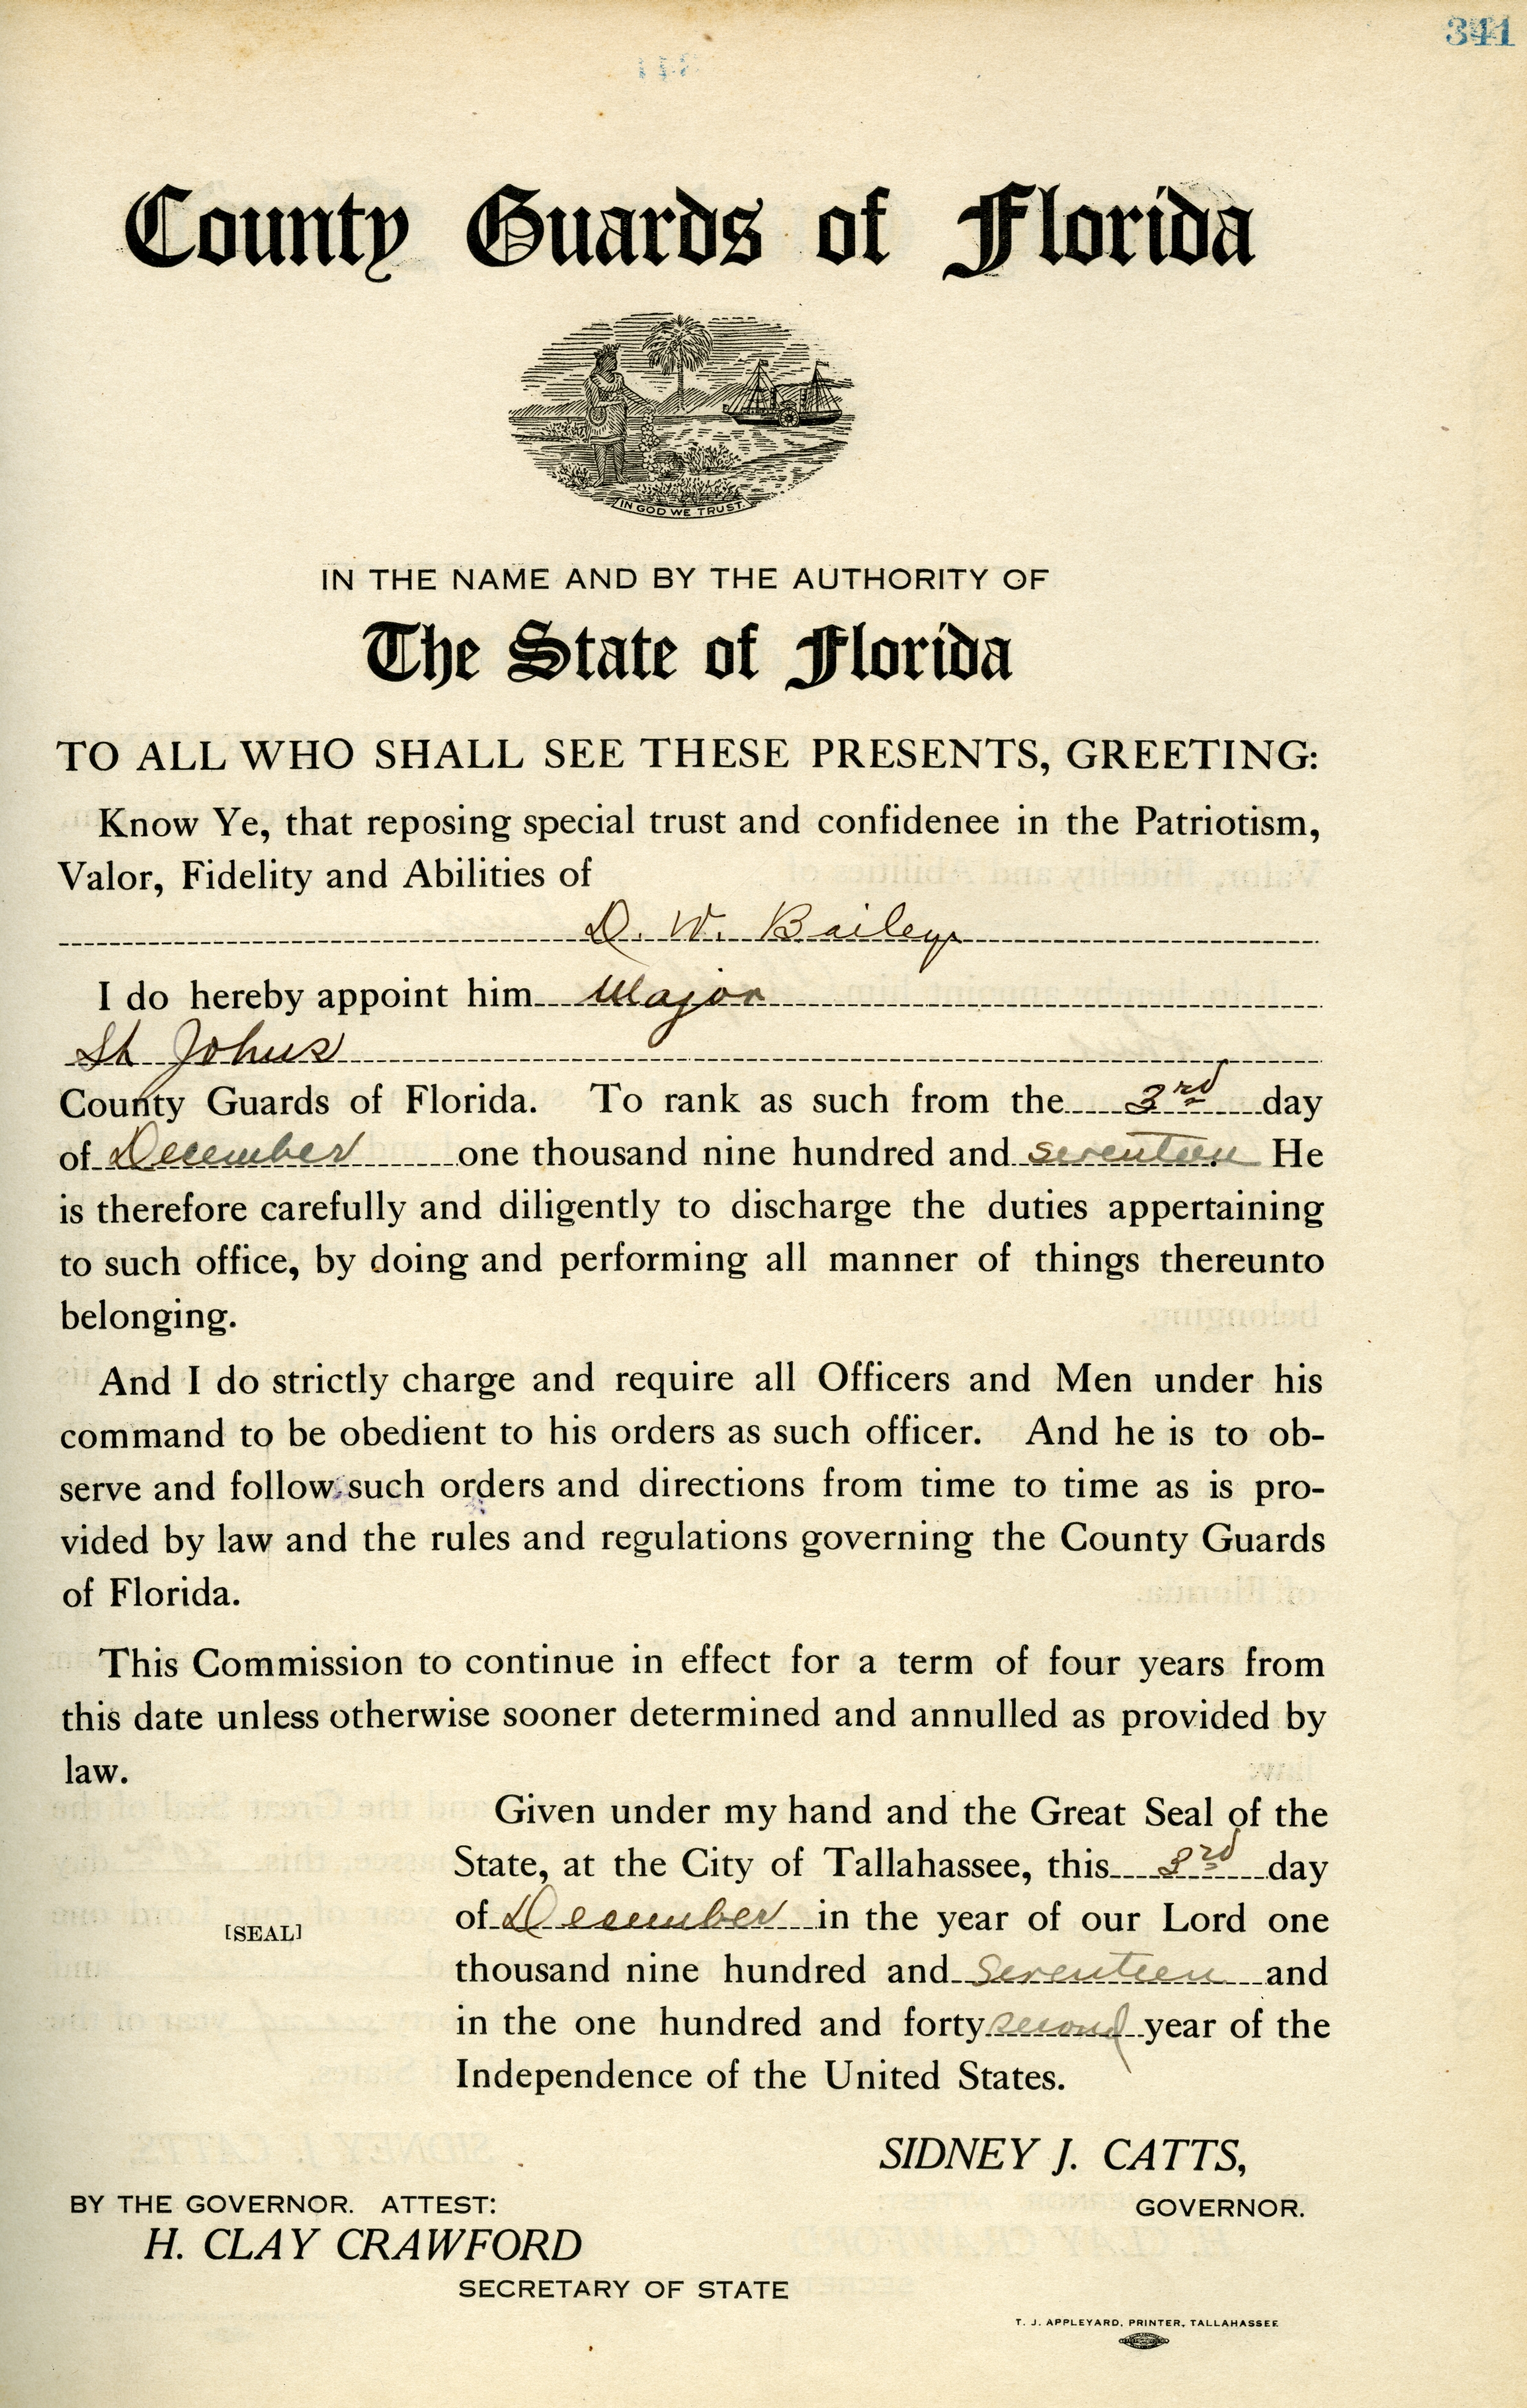 341
County Guards of Florida
IN GOD WE TRUST.
IN THE NAME AND BY THE AUTHORITY OF
The State of Florida
TO ALL WHO SHALL SEE THESE PRESENTS, GREETING:
Know Ye, that reposing special trust and confidenee in the Patriotism,
Valor, Fidelity and Abilities of
D. W. Bailey
I do hereby appoint him Major
St Johns
County Guards of Florida. To rank as such from the 3rd day
of December one thousand nine hundred and seventeen He
is therefore carefully and diligently to discharge the duties appertaining
to such office, by doing and performing all manner of things thereunto
belonging.
And I do strictly charge and require all Officers and Men under his
command to be obedient to his orders as such officer. And he is to ob-
serve and follow such orders and directions from time to time as is pro-
vided by law and the rules and regulations governing the County Guards
of Florida.
This Commission to continue in effect for a term of four years from
this date unless otherwise sooner determined and annulled as provided by
law.
Given under my hand and the Great Seal of the
State, at the City of Tallahassee, this 3rd day
of December in the year of our Lord one
[SEAL]
thousand nine hundred and Seventeen and
in the one hundred and forty second year of the
Independence of the United States.
SIDNEY J. CATTS,
GOVERNOR.
BY THE GOVERNOR. ATTEST:
H. CLAY CRAWFORD
SECRETARY OF STATE
T. J. APPLEYARD, PRINTER, TALLAHASSEE